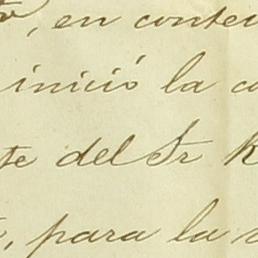 , en conte
inició la c
te del Sr R
, para la s